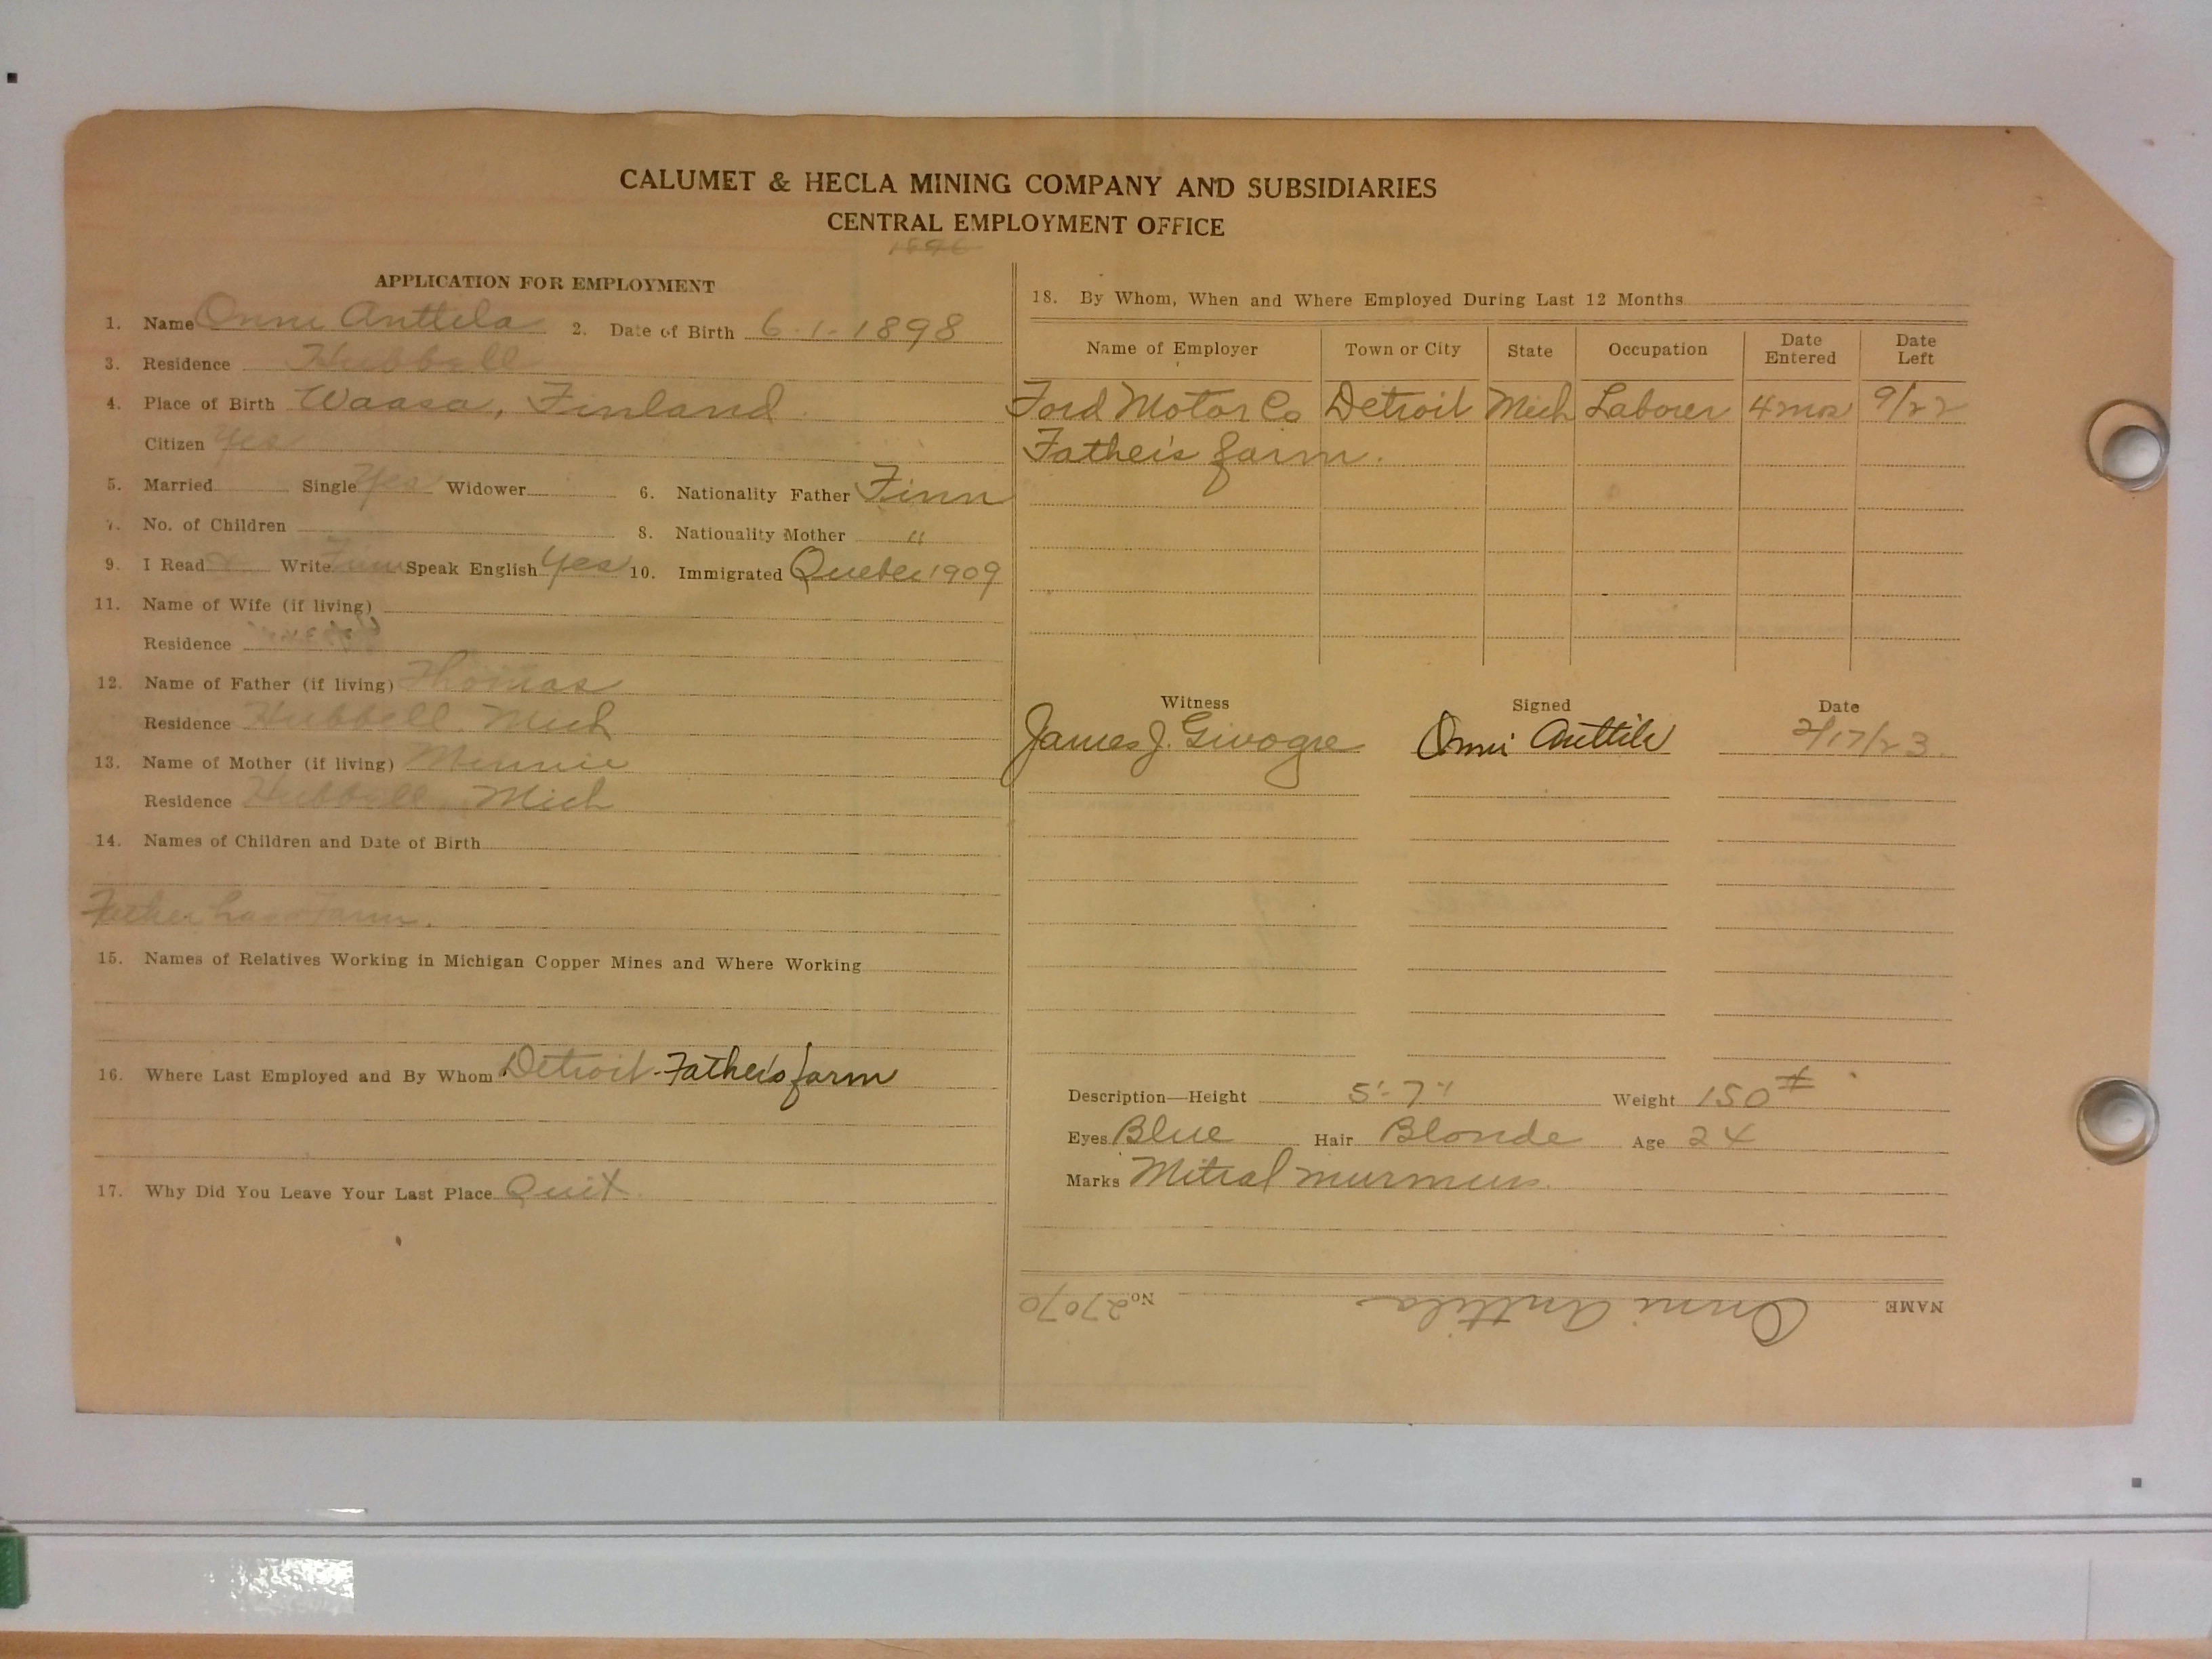 CALUMET & HECLA MINING COMPANY AND SUBSIDIARIES
CENTRAL EMPLOYMENT OFFICE
APPLICATION FOR EMPLOYMENT
1. Name Onni Anttila 2. Date of Birth 6-1-1898
3. Residence Hubbell
4. Place of Birth Waasa, Finland
Citizen Yes
5. Married Single Yes Widower 6. Nationality Father Finn
7. No. of Children 8. Nationality Mother "
9. I Read & Write Finn Speak English Yes 10. Immigrated Quebec 1909
11. Name of Wife (if living)
Residence
12. Name of Father (if living) Thomas
Residence Hubbell, Mich
13. Name of Mother (if living) Minnie
Residence Hubbell, Mich
14. Names of Children and Date of Birth
Father has Farm.
15. Names of Relatives Working in Michigan Copper Mines and Where Working
16. Where Last Employed and By Whom Detroit - Father's farm
17. Why Did You Leave Your Last Place Quit
18. By Whom, When and Where Employed During Last 12 Months
Name of Employer Town or City State Occupation Date Entered Date Left
Ford Motor Co Detroit Mich Laborer 4 mos 9/22
Father's farm.
Witness Signed Date
James J. Onni Anttila 2/17/23.
Description—Height 5'-7" Weight 150#
Eyes Blue Hair Blonde Age 24
Marks Mitral murmurs.
NAME Onni Anttila No. 27070